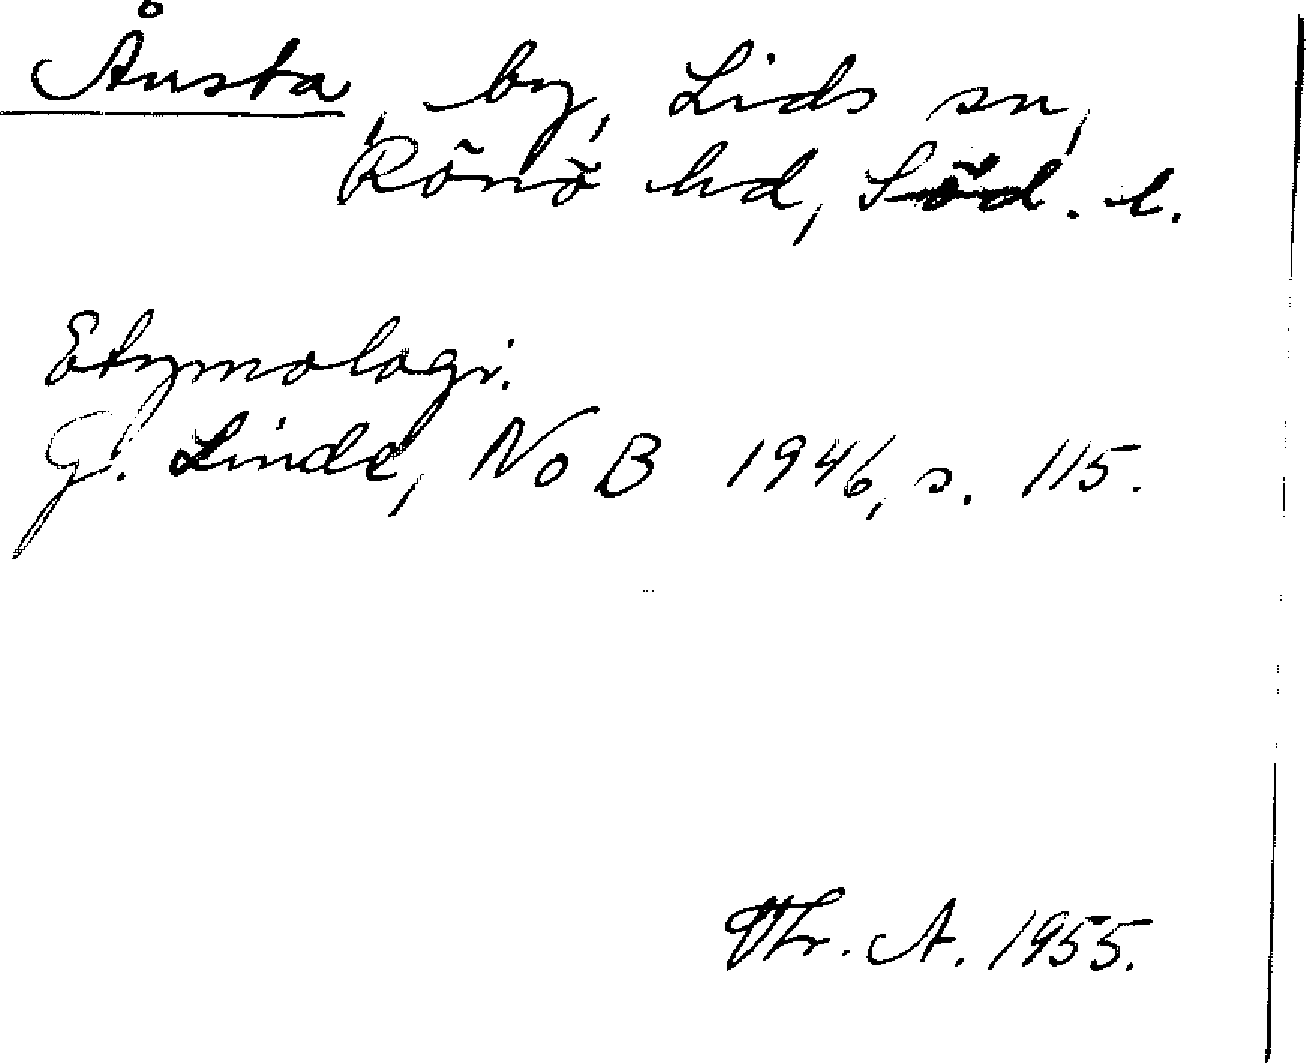 Åusta, by, Lids sn,
Rönö hd, Söd. l.
Etymologi.
G. Linde, NoB 1946, s. 115.
Thr. A. 1955.